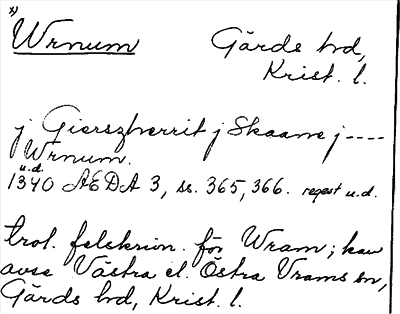 x)
Wrnum Gärds hd,
Krist. l.
j Gierszherrit j Skaane j ----
Wrnum.
u.d.
1340 AEDA 3, ss. 365, 366. regest u.d.
trol. felskrivn. för Wram; kan
avse Västra el. Östra Vrams sn,
Gärds hd, Krist. l.